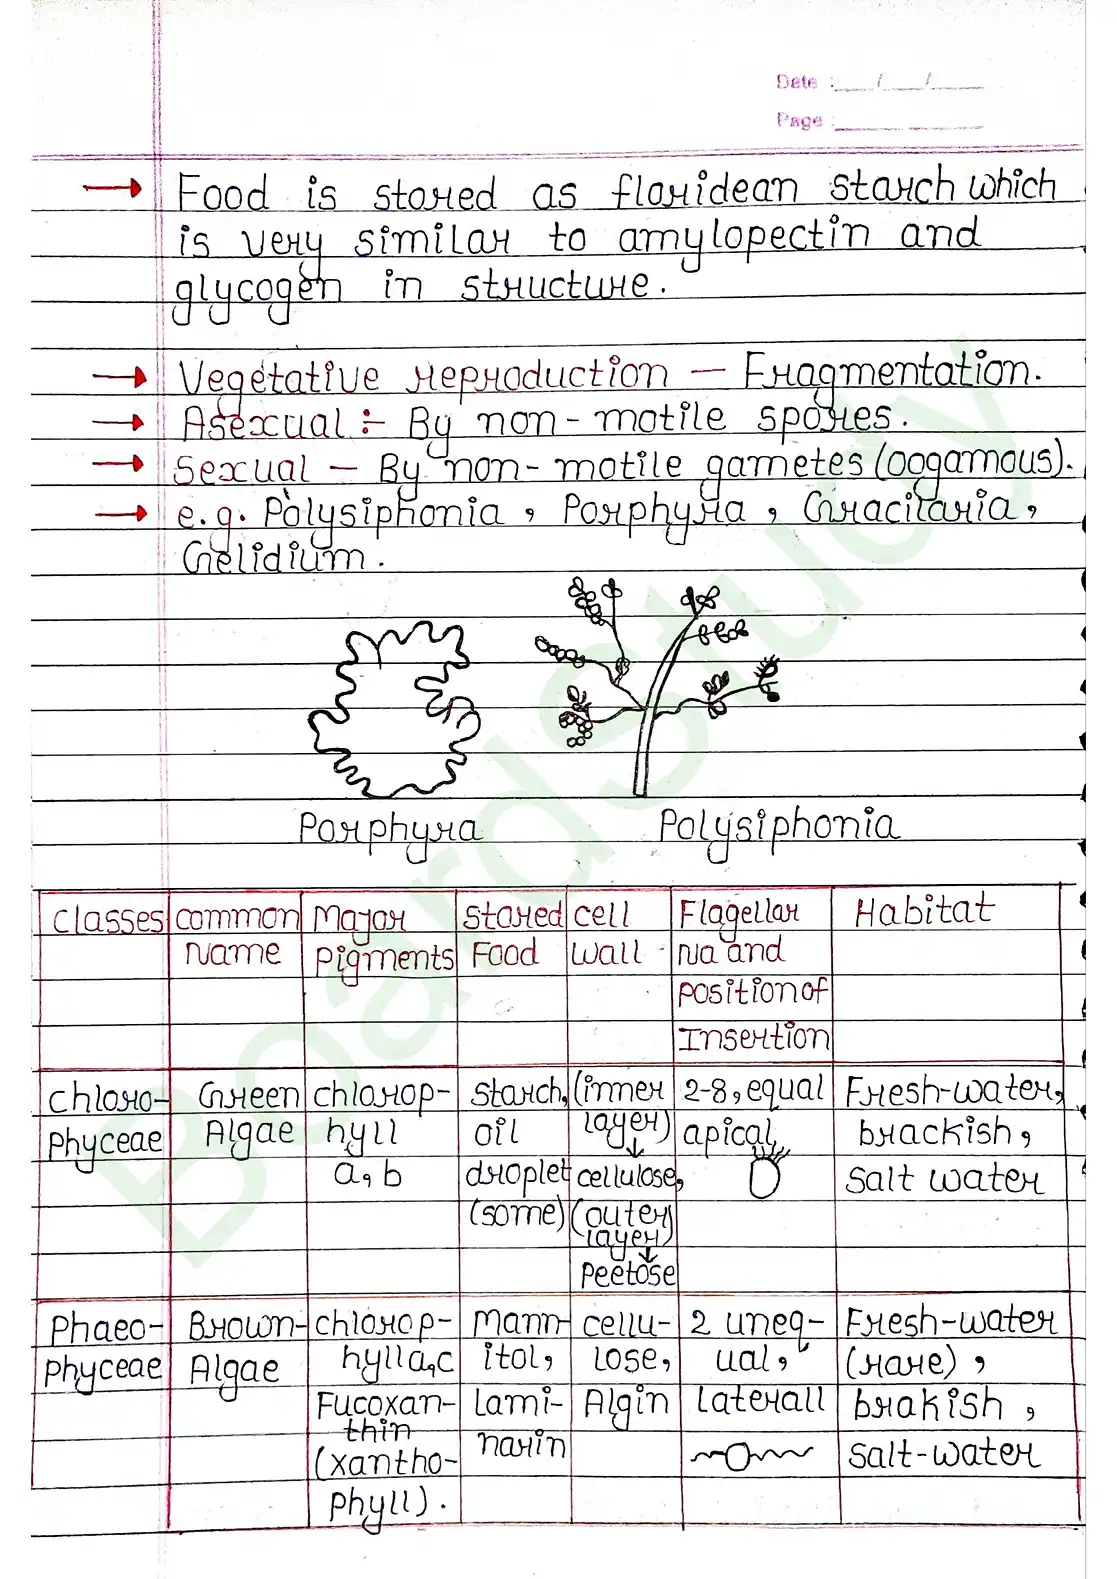 Date : __/__/__
Page : ______
→ Food is stored as floridean starch which
is very similar to amylopectin and
glycogen in structure.
→ Vegetative reproduction — Fragmentation.
→ Asexual :- By non-motile spores.
→ Sexual — By non-motile gametes (oogamous).
→ e.g. Polysiphonia, Porphyra, Gracilaria,
Gelidium.
Porphyra Polysiphonia
Classes common Major stored cell Flagellar Habitat
Name Pigments Food wall No and
Position of
Insertion
chloro- Green chlorop- starch, (inner 2-8, equal Fresh-water,
Phyceae Algae hyll oil layer) apical, brackish,
a, b droplet ↓ cellulose, salt water
(some) (outer
layer)
↓ Peetose
Phaeo- Brown- chlorop- Mann- cellu- 2 uneq- Fresh-water
Phyceae Algae hyll a,c itol, lose, ual, (rare),
Fucoxan- lami- Algin laterall brakish,
thin narin salt-water
(xantho-
phyll).
BoardStudy